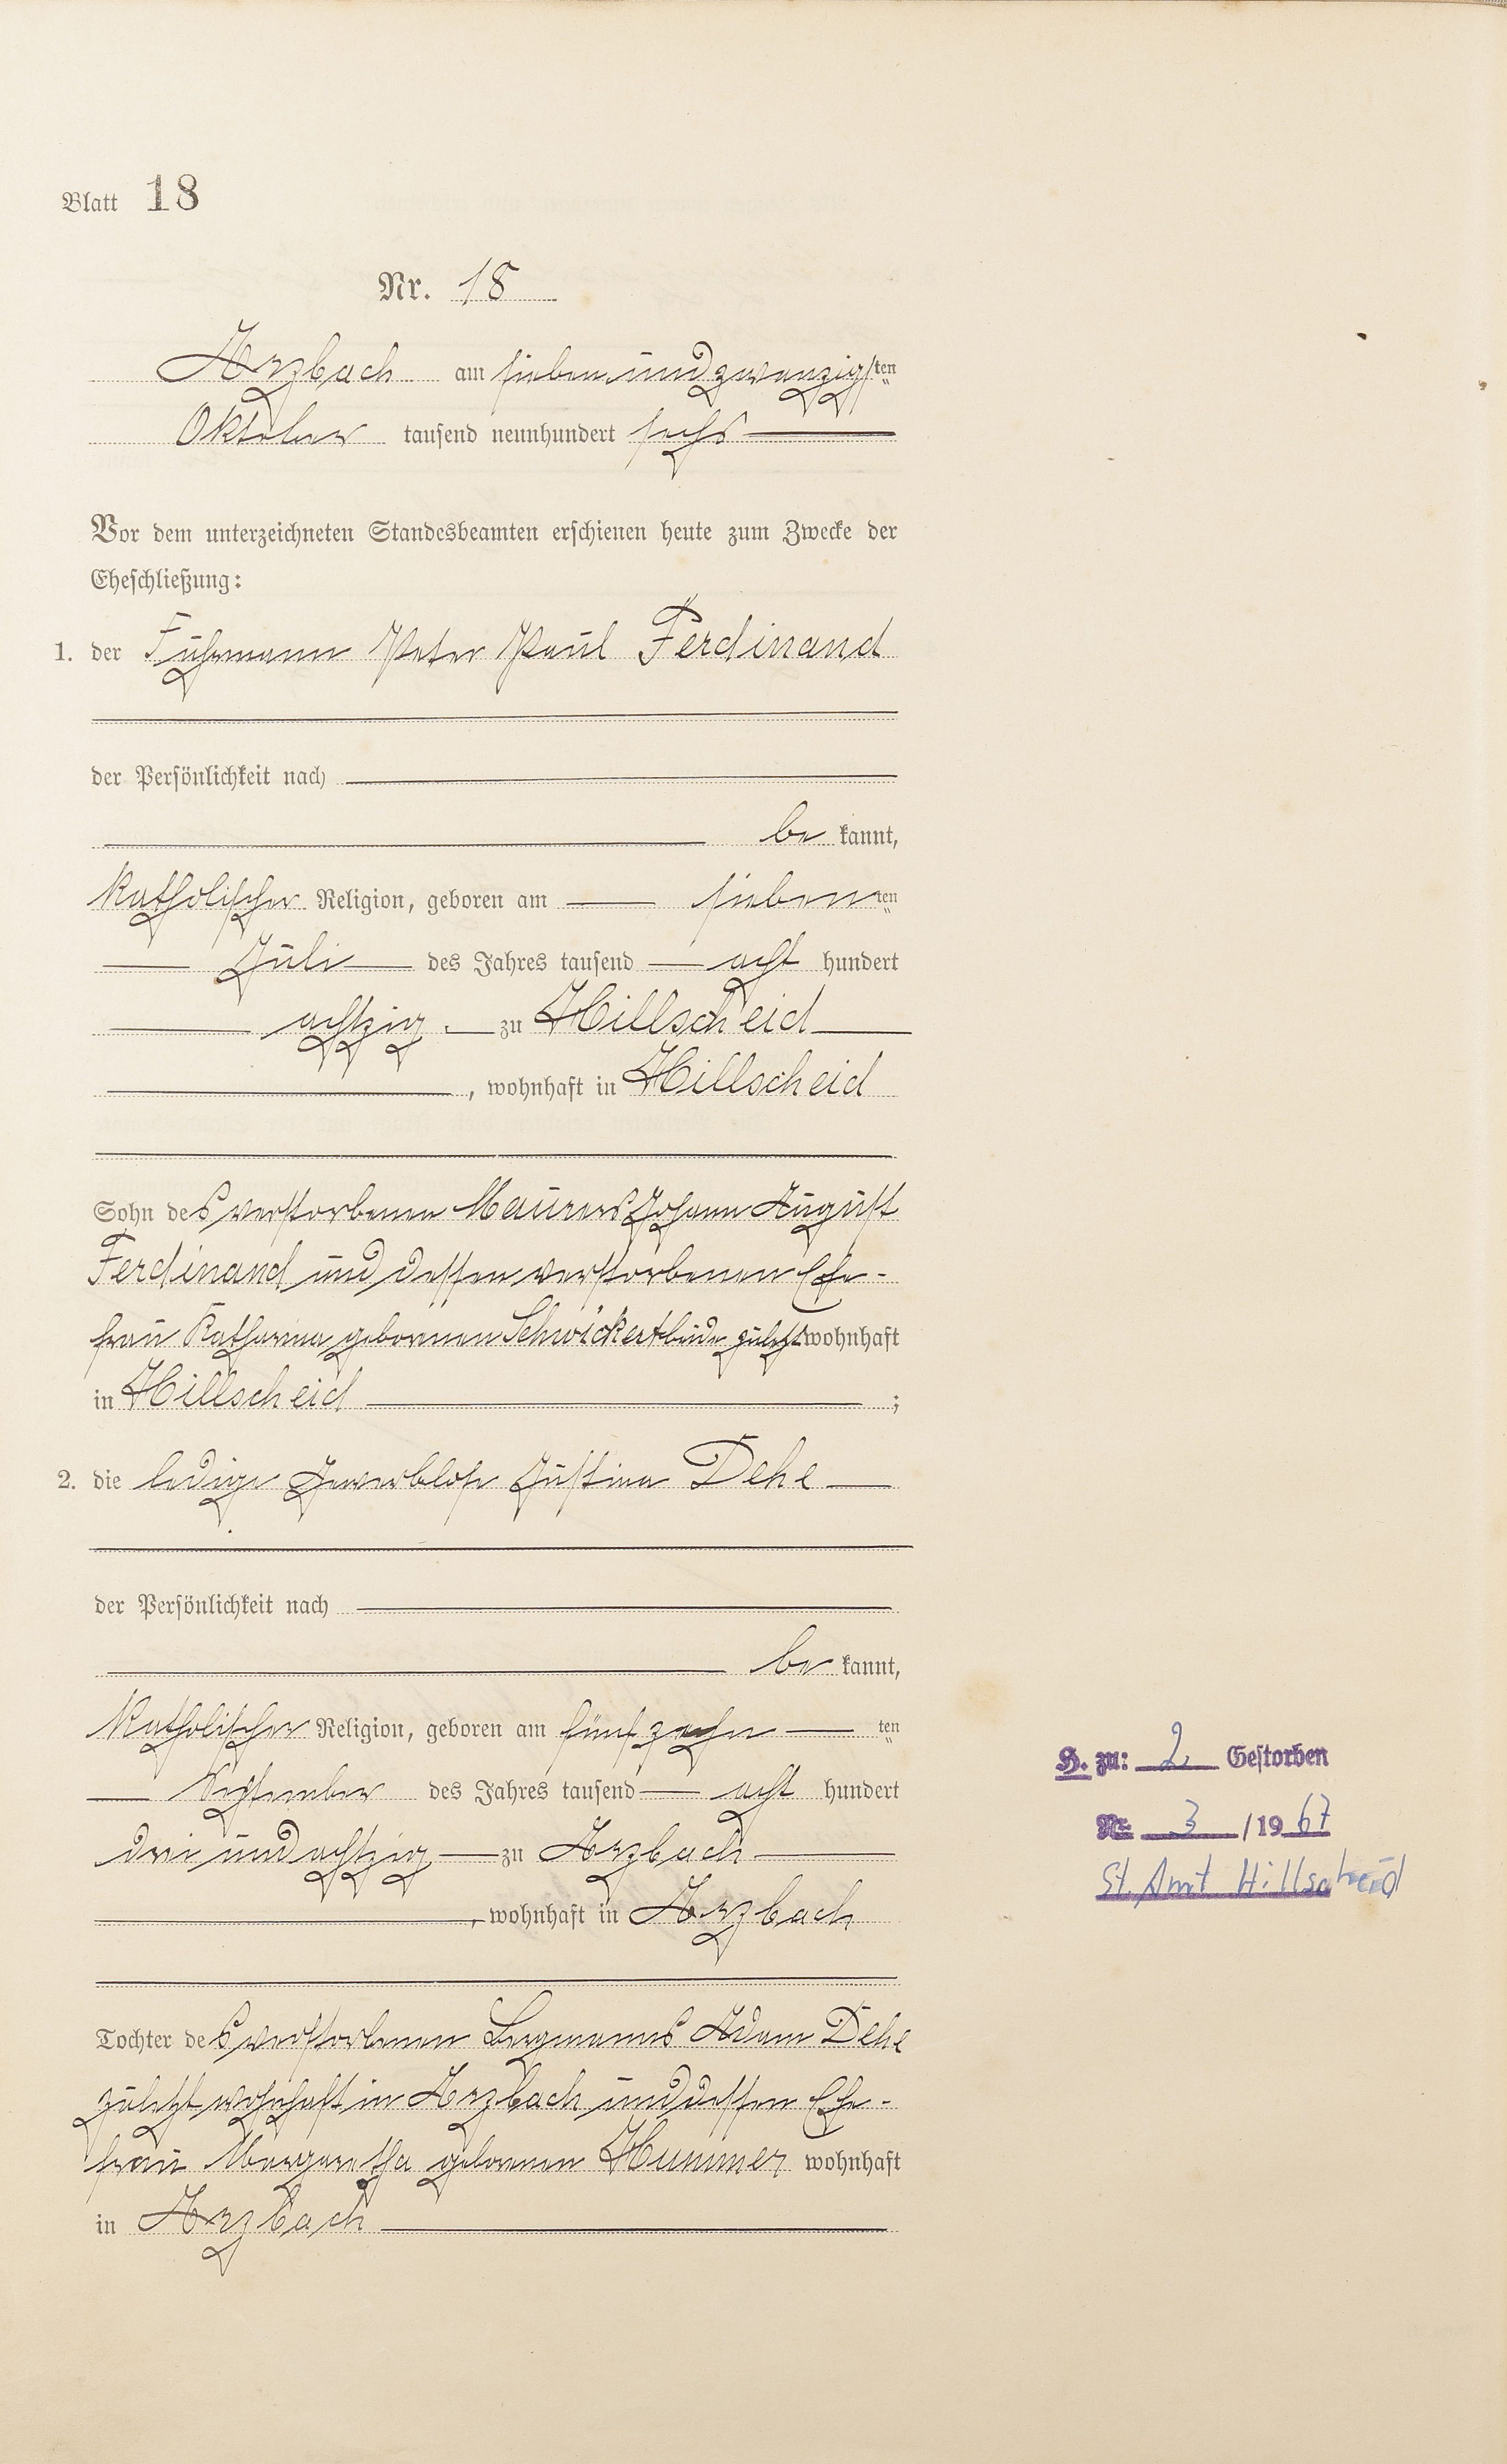 Blatt 18
Nr. 18
Arzbach am siebenundzwanzigsten
Oktober tausend neunhundert sechs
Vor dem unterzeichneten Standesbeamten erschienen heute zum Zwecke der
Eheschließung:
1. der Fuhrmann Peter Paul Ferdinand
der Persönlichkeit nach
be kannt,
katholischer Religion, geboren am siebenten
Juli des Jahres tausend acht hundert
achtzig zu Hillscheid
, wohnhaft in Hillscheid
Sohn des verstorbenen Maurers Johann August
Ferdinand und dessen verstorbenen Ehe-
frau Katharina geborenen Schwickert beide zuletzt wohnhaft
in Hillscheid ;
2. die ledige Gewerblose Justina Dehe
der Persönlichkeit nach
be kannt,
katholischer Religion, geboren am fünfzehn ten
September des Jahres tausend acht hundert
drei und achtzig zu Arzbach
, wohnhaft in Arzbach
H. zu: 2. Gestorben
Nr. 3 /1967
St. Amt Hillscheid
Tochter des verstorbenen Bergmanns Adam Dehe
zuletzt wohnhaft in Arzbach und dessen Ehe-
frau Margaretha geborenen Hummer wohnhaft
in Arzbach